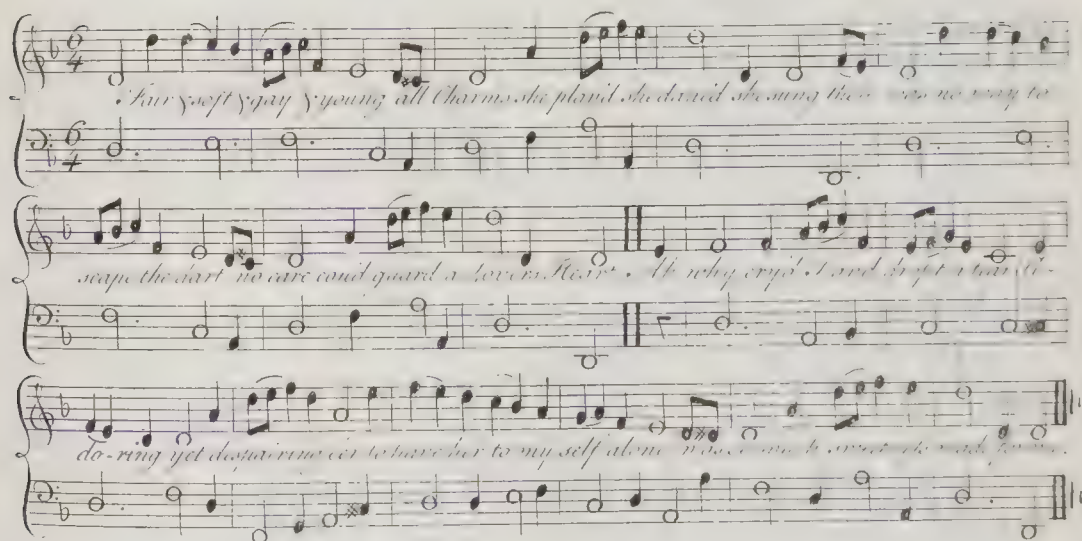 6 4
Fair & soft & gay & young all Charms she play'd she danc'd she sung there was no way to
6 4
scape the dart no care coud guard a Lovers Heart. Ah why cry'd I and dropt a tear
do-ring yet dispairing eer to have her to my self alone